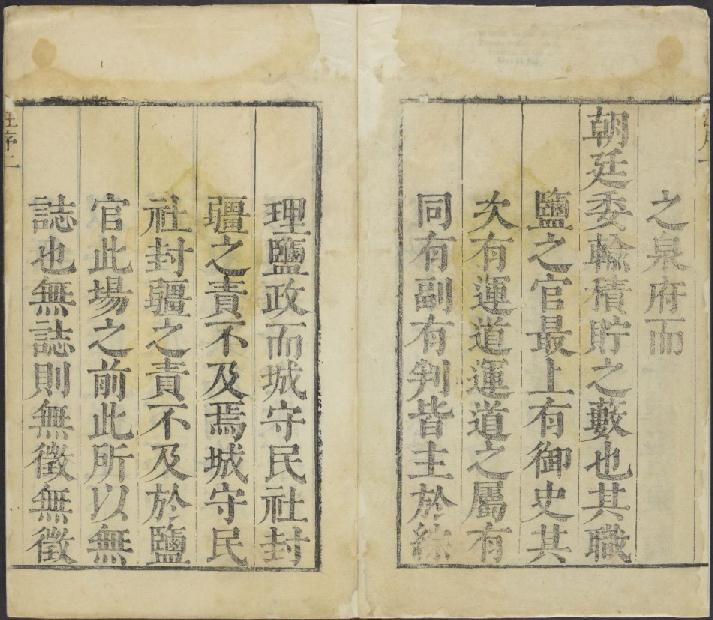 之泉府而
朝廷委輸積貯之藪也其職
鹽之官最上有御史其
次有運道運道之屬有
同有副有判皆主於綜
理鹽政而城守民社封
疆之責不及焉城守民
社封疆之責不及於鹽
官此場之前此所以無
誌也無誌則無徵無徵